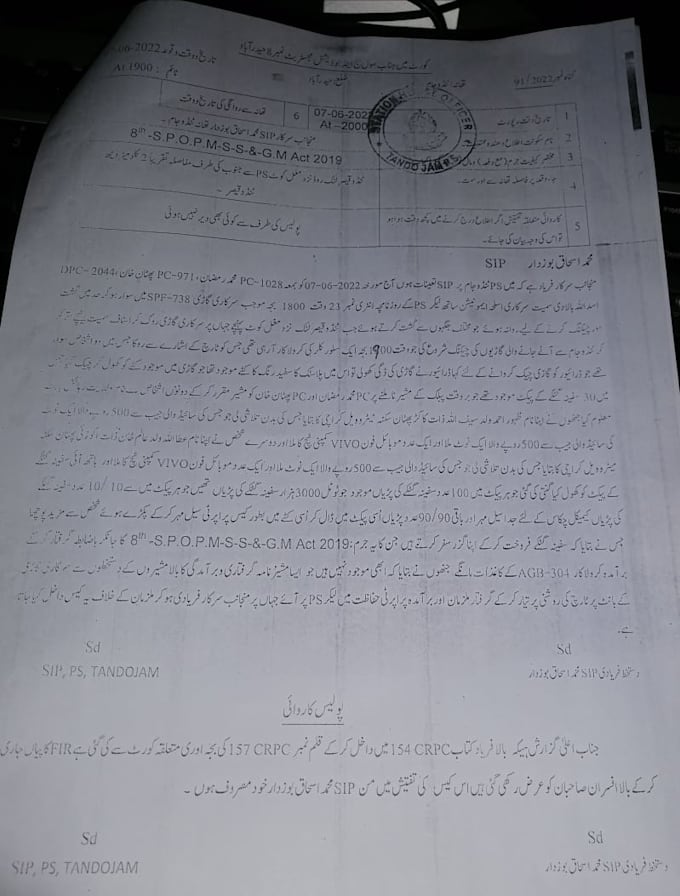 کورٹ میں جناب سول جج اینڈ جوڈیشل مجسٹریٹ نمبر 8 حیدرآباد
تاریخ و وقت وقوعہ 06-2022-
ٹائم : At 1900
ضلع حیدرآباد
تھانہ ٹنڈوجام
گناہ نمبر 91/2022
1 تاریخ وقت رپورٹ
07-06-2022
At 2000
6 تھانہ سے روانگی کی تاریخ و وقت
2 نام سکونت اطلاع دہندہ
منجانب سرکار SIP محمد اسحاق بوزدار تھانہ ٹنڈوجام
3 مختصر کیفیت جرم (مع دفعہ)
8th -S.P.O.P.M-S-S-&-G.M Act 2019
4 جائے وقوعہ فاصلہ تھانہ سے اور سمت۔
ٹنڈو قیصر لنک روڈ نزد مغل کوٹ PS سے جنوب کی طرف مفاصلہ تقریباً 2 کلومیٹر دیھ
ٹنڈو قیصر۔
5 کاروائی متعلقہ تفتیش اگر اطلاع درج کرنے میں کچھ وقت ہوا ہو
تو اس کی وجہ بیان کی جائے۔
پولیس کی طرف سے کوئی بھی دیر نہیں ہوئی
STATION HOUSE OFFICER
TANDOJAM P.S
محمد اسحاق بوزدار SIP
منجانب سرکار فریاد ہے کہ میں PS ٹنڈوجام پر SIP تعینات ہوں آج مورخہ 07-06-2022 کو بمعہ PC-1028 محمد رمضان، PC-971 پٹھان خان، DPC-2044
اسد اللہ بالادی سمیت سرکاری اسلحہ ایمونیشن ساتھ لیکر PS کے روزنامچہ انٹری نمبر 23 وقت 1800 بجہ موجب سرکاری گاڑی SPF-738 میں سوار ہو کر حد میں گشت
اور چیکنگ کرنے کے لیے روانہ ہوئے جو مختلف جگہوں سے گشت کرتے ہوئے جب ٹنڈو قیصر لنک نزد مغل کوٹ پہنچے جہاں پر سرکاری گاڑی روک کر اسٹاف سمیت نیچے اتر
کر ٹنڈوجام سے آنے جانے والی گاڑیوں کی چیکنگ شروع کی جو وقت 1900 بجہ ایک سلور کلر کی کرولا کار آرہی تھی جس کو ٹارچ کے اشارے سے روکا جس میں دو اشخاص سوار
تھے جو ڈرائیور کو گاڑی چیک کروانے کے لئے کہا ڈرائیور نے گاڑی کی ڈگی کھولی تو اس میں پلاسٹک کا سفید رنگ کا کٹے موجود تھا جو گاڑی میں موجود کٹے کو کھول کر چیک کیا تو اس
میں 30 سفینہ گٹکے کے پیکٹ موجود تھے جو بروقت پبلک کے مشیر نا ملنے پر PC محمد رمضان اور PC پٹھان خان کو مشیر مقرر کر کے دونوں اشخاص سے نام ولدیت
معلوم کیا جنھوں نے اپنا نام ظہور احمد ولد سیف اللہ ذات کاکڑ پٹھان سکنہ میٹروویل کراچی کا بتایا جس کی بدن تلاشی لی جو جس کی سائیڈ والی جیب سے 500 روپے والا ایک نوٹ
کی سائیڈ والی جیب سے 500 روپے والا ایک نوٹ ملا اور ایک عدد موبائل فون VIVO کمپنی ٹچ کا ملا اور دوسرے شخص نے اپنا نام عطا اللہ ولد عالم خان ذات پٹھان سکنہ
میٹروویل کراچی کا بتایا جس کی بدن تلاشی لی جو جس کی سائیڈ والی جیب سے 500 روپے والا ایک نوٹ ملا اور ایک عدد موبائل فون VIVO کمپنی ٹچ کا ملا اور ہاتھ آئی سفینہ گٹکے
کے پیکٹ کو کھول کیا گنتی کی گئی جو ہر پیکٹ میں 100 عدد سفینہ گٹکے کی پڑیاں موجود جو ٹوٹل 3000 ہزار سفینہ گٹکے کی پڑیاں تھیں جو ہر پیکٹ میں سے 10/10 عدد سفینہ گٹکے
کی پڑیاں کیمیکل چکاس کے لئے جدا سیل مہر اور باقی 90/90 عدد پڑیاں اُسی پیکٹ میں ڈال کر اُسی کٹے میں بطور کیس پراپرٹی سیل مہر کر کے پکڑے ہوئے شخص سے مزید پوچھا
جس نے بتایا کہ سفینہ گٹکے فروخت کر کے اپنا گزر سفر کرتے ہیں جن کا یہ جرم : 8th -S.P.O.P.M-S-S-&-G.M Act 2019 کا جانکر باضابطہ گرفتار کر کے
برآمدہ کرولا کار AGB-304 کے کاغذات مانگے جنھوں نے بتایا کہ ابھی موجود نہیں ہیں جو ایسا مشیر نامہ گرفتاری و برآمدگی کا بالا مشیروں کے دستخطوں سے سرکاری گاڑی
کے بانٹ پر ٹارچ کی روشنی پر تیار کر کے گرفتار ملزمان اور برآمدہ پراپرٹی حفاظت میں لیکر PS پر آئے جہاں پر منجانب سرکار فریادی ہو کر ملزمان کے خلاف یہ کیس داخل کیا جاتا
ہے۔
Sd
دستخط فریادی SIP محمد اسحاق بوزدار
Sd
SIP, PS, TANDOJAM
پولیس کاروائی
جناب اعلیٰ گزارش ہیکہ بالا فریاد کتاب 154 CRPC میں داخل کر کے قلم نمبر 157 CRPC کی بجہ اوری متعلقہ کورٹ سے کی گئی ہے FIR کا بیاں جاری
کر کے بالا افسران صاحبان کو عرض رکھی گئی ہیں اس کیس کی تفتیش میں من SIP محمد اسحاق بوزدار خود مصروف ہوں۔
Sd
دستخط فریادی SIP محمد اسحاق بوزدار
Sd
SIP, PS, TANDOJAM